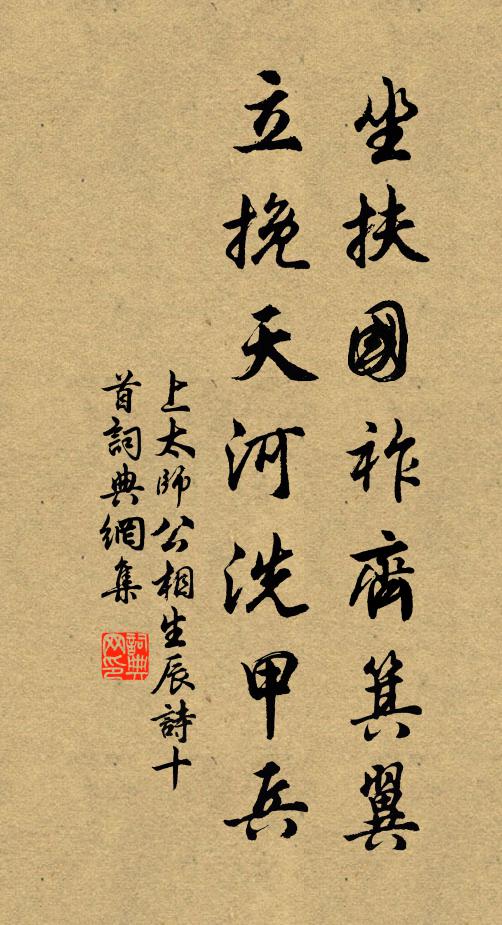 坐扶國祚齊箕翼
立挽天河洗甲兵
上太師公相生辰詩十
首詞典網集
詞典
网印